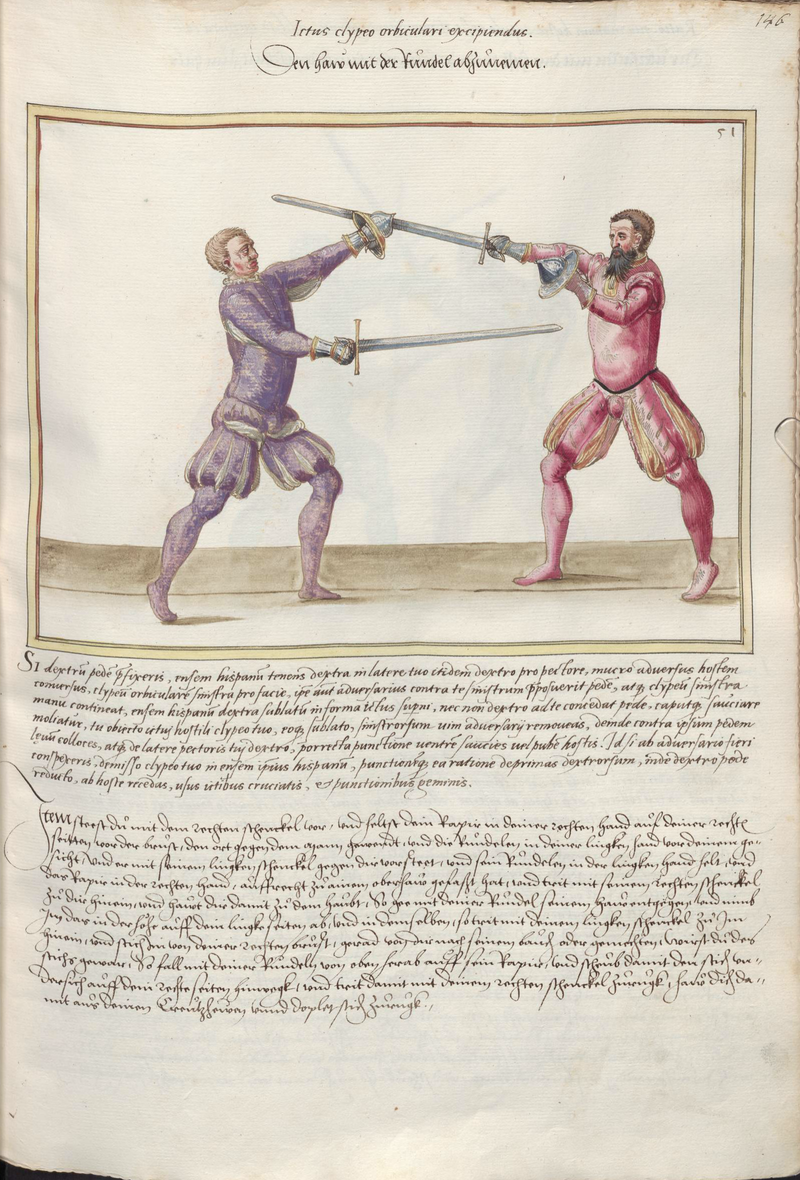 146
Ictus clypeo orbiculari excipiendus.
Den haw mit der Rundel abzunemen.
51
Si dextrũ pedẽ p̃fixeris, ensem hispanũ tenens dextra in latere tuo itidem dextro pro pectore, mucro adversus hostem
conversus, clypeũ orbicularẽ sinistra pro facie, ipse aut adversarius contra te sinistrum p̃posuerit pedẽ, atq clypeũ sinistra
manu contineat, ensem hispanũ dextra sublatũ in forma ictus supni, nec non dextro ad te concedat pede, caputq sauciare
moliatur, tu obiecto ictui hostili clypeo tuo, eoq sublato, sinistrorsum vim adversarij removeas, deinde contra ipsum pedem
levũ colloces, atq de latere pectoris tui dextro, porrecta punctione ventrẽ saucies vel pubẽ hostis. Id si ab adversario fieri
conspexeris, demisso clypeo tuo in ensem ipsius hispanũ, punctionẽq ea ratione deprimas dextrorsum, inde dextro pede
reducto, ab hoste recedas, usus ictibus cruciatis, & punctionibus geminis.
Item steest du mit dem rechten schenckel vor, und heltst dein Rapir in deiner rechten hand auf deiner rechtẽ
seitten vor der brust, den ort gegen dem mann gewendt, und die Rundelen in deiner lingken hand vor deinem ge-
sicht, Und er mit seinem lingken schenckel gegen dir vorsteet, und sein Rundelen in der lingken hand helt, und
das Rapir in der rechten hand, auffrecht zu ainem oberhaw gefasst hat, und trit mit seinem rechten schenckel
zu dir hinein, und hawt dir damit zu dem haubt, So gee mit deiner Rundel seinem haw entgegen und nimb
Im den in der höhe auff dein lingke seiten ab, und in demselben, so trit mit deinem lingken schenckel zu Im
hinein, und stich Im von deiner rechten brust, gerad von dir nach seinem bauch oder gemechten, Wirst du des
stichs gewar, So fall mit deiner Rundeln von oben herab auff sein Rapir, und scheub damit den stich un-
dersich auff dein rechte seiten hinwegk, und trit damit mit deinem rechten schenckel zurugk, haw dich da-
mit aus deinen Creutzhewen unnd doplet stich zurugk.